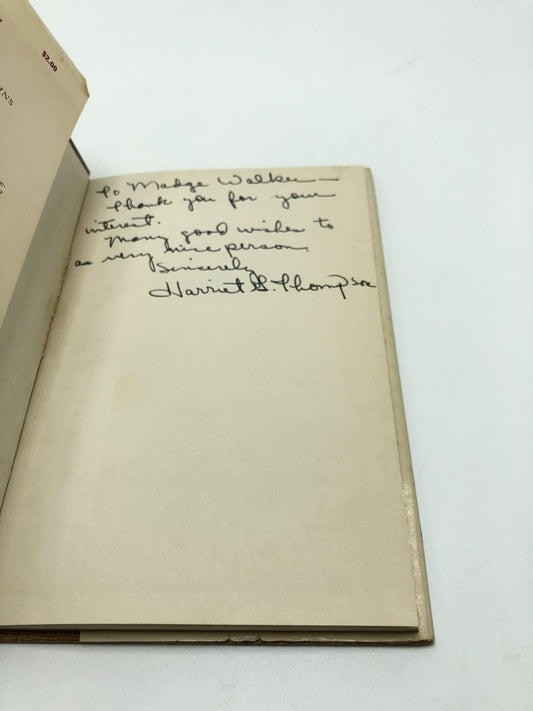 $2.00
INS
To Madge Walker —
Thank you for your
interest.
Many good wishes to
a very nice person.
Sincerely
Harriet G. Thompson